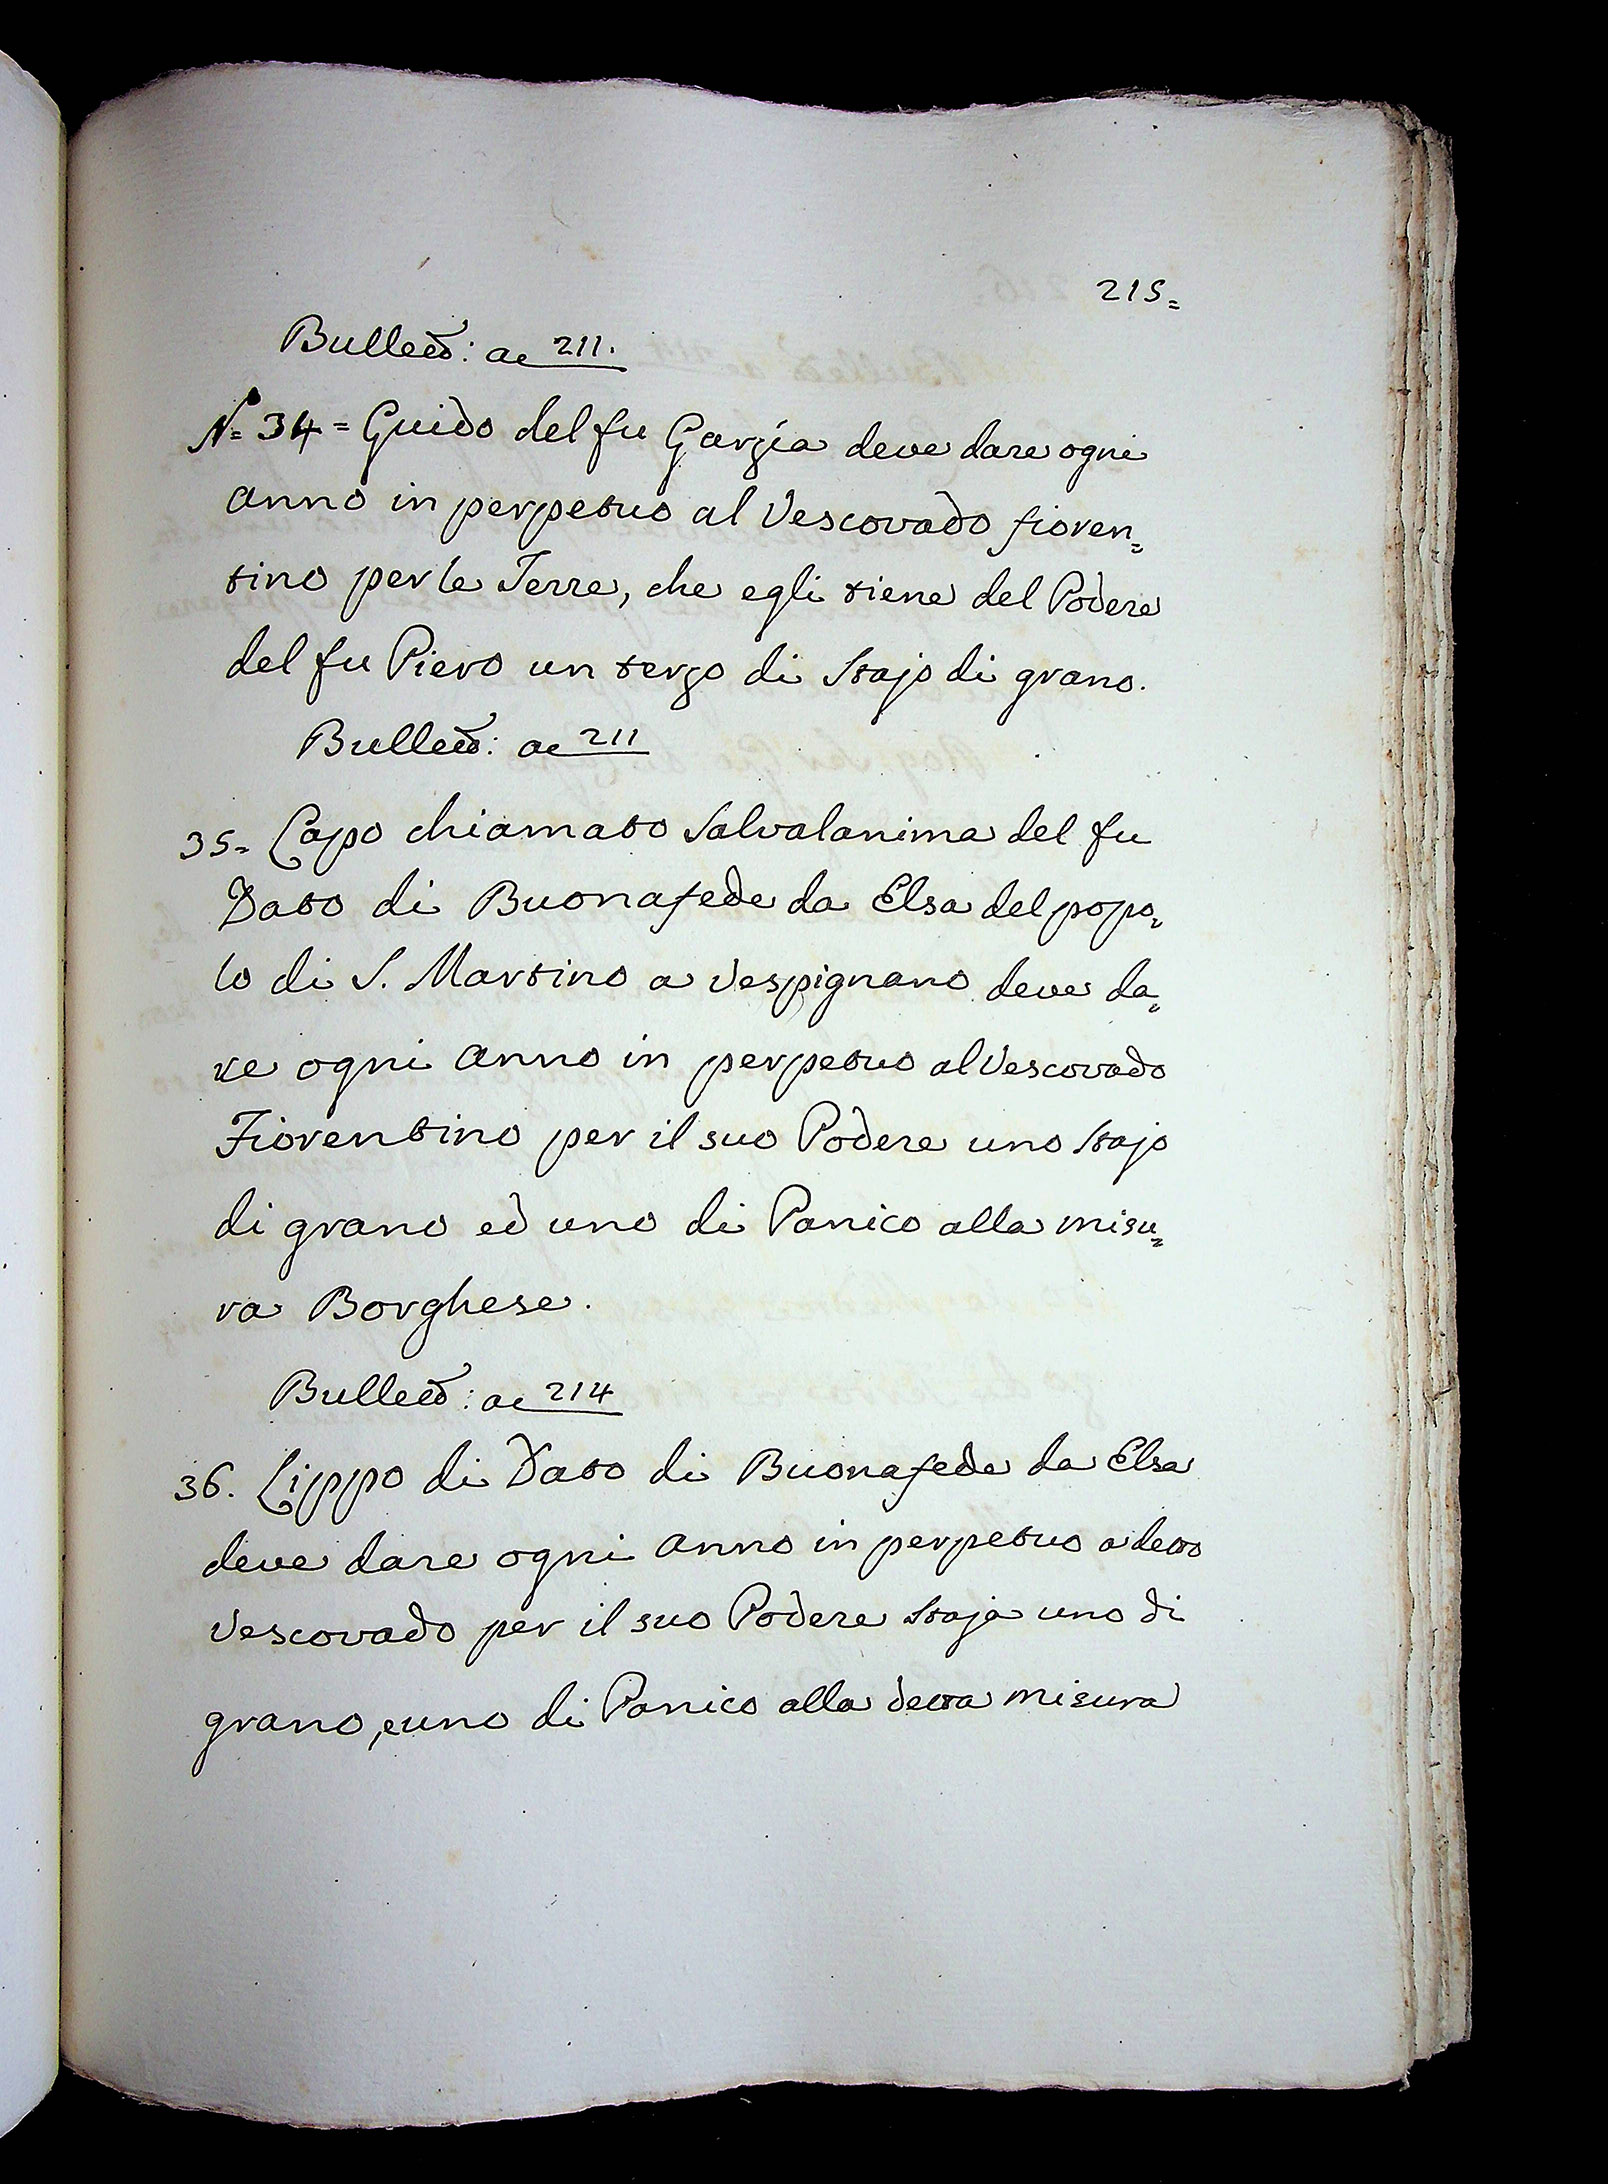 215=
Bullett: ac 211.
N= 34 = Guido del fu Garzia deve dare ogni
anno in perpetuo al Vescovado fioren=
tino per le Terre, che egli tiene del Podere
del fu Piero un terzo di Stajo di grano.
Bullett: ac 211
35= Capo chiamato Salvalanima del fu
Dato di Buonafede da Elsa del popo=
lo di S. Martino a Vespignano deve da=
re ogni anno in perpetuo al Vescovado
Fiorentino per il suo Podere uno Stajo
di grano ed uno di Panico alla misu=
ra Borghese.
Bullett: ac 214
36. Lippo di Dato di Buonafede da Elsa
deve dare ogni anno in perpetuo a detto
Vescovado per il suo Podere Staja uno di
grano, e uno di Panico alla detta misura